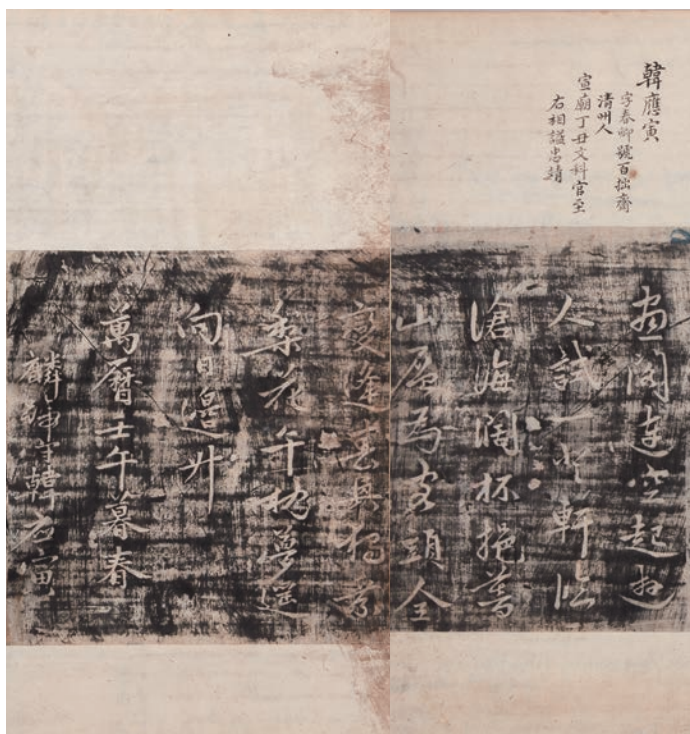 韓應寅
字春卿號百拙齋
清州人
宣廟丁丑文科官至
右相諡忠靖
畫閣連空起遊
人試一登軒臨
滄海闊杯挹
山層爲客頭全
變逢春興
梨花午枕夢還
向日邊升
萬曆壬午暮春
麟 生韓應寅